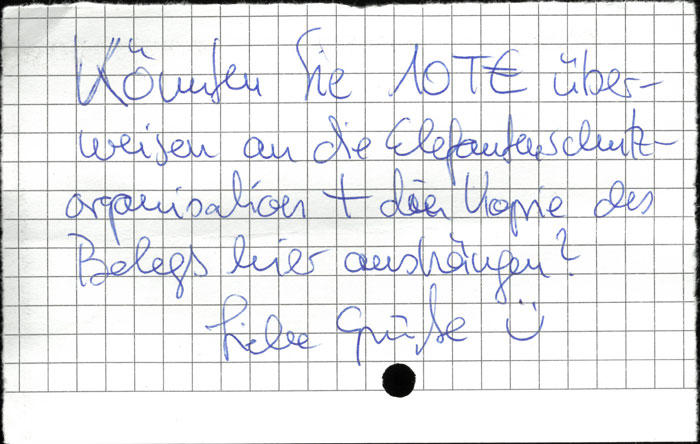 Könnten Sie 10T€ über-
weisen an die Elefantenschutz-
organisation + die Kopie des
Belegs hier aushängen?
Liebe Grüße ☺